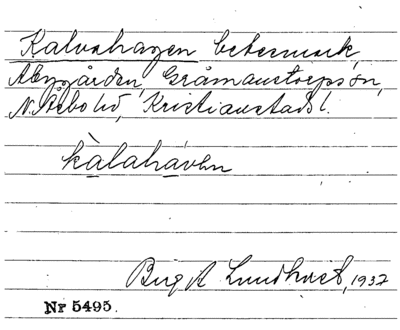 Kalvahagen betesmark,
Åbygården, Gråmanstorps sn,
N. Åsbo hd, Kristianstads l.
kàlaháven
Birg A Lundkvist, 1937
Nr 5495.